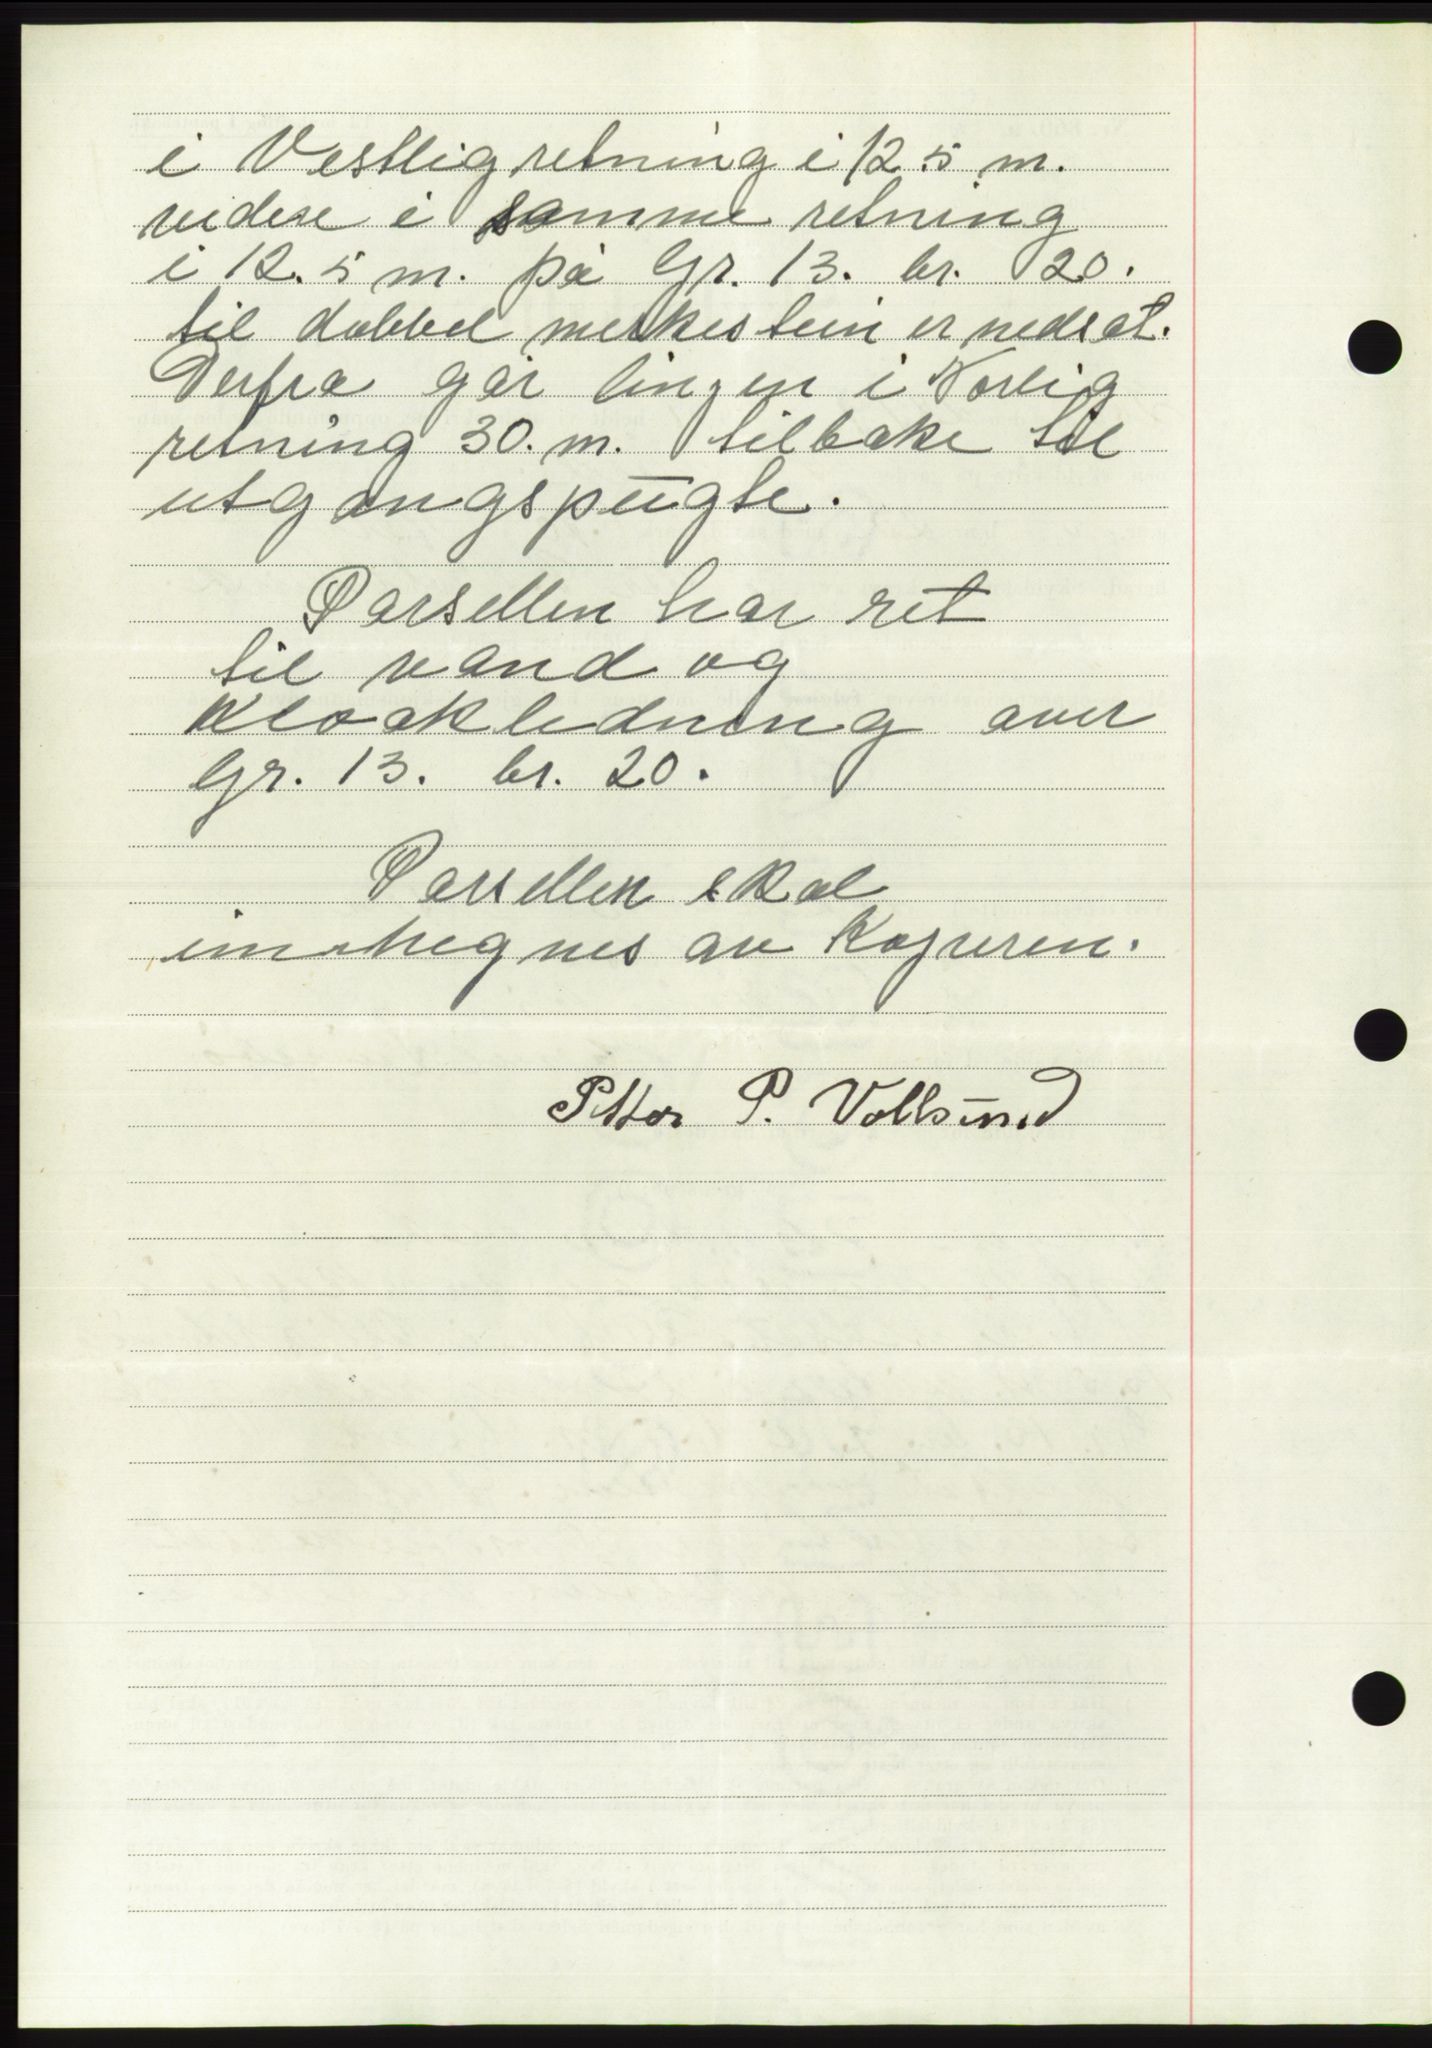 i Vestlig retning i 12.5 m.
videre i samme retning
i 12.5 m. på Gr. 13. br. 20.
til dobbel merkestein er nedsat.
Derfra går linjen i Norlig
retning 30. m. tilbake til
utgangspūgte.
Parsellen har ret
til vand og
Kloakledning over
Gr. 13. br. 20.
Parsellen skal
innhegnes av Kojperen.
Petter P. Vollsūnd